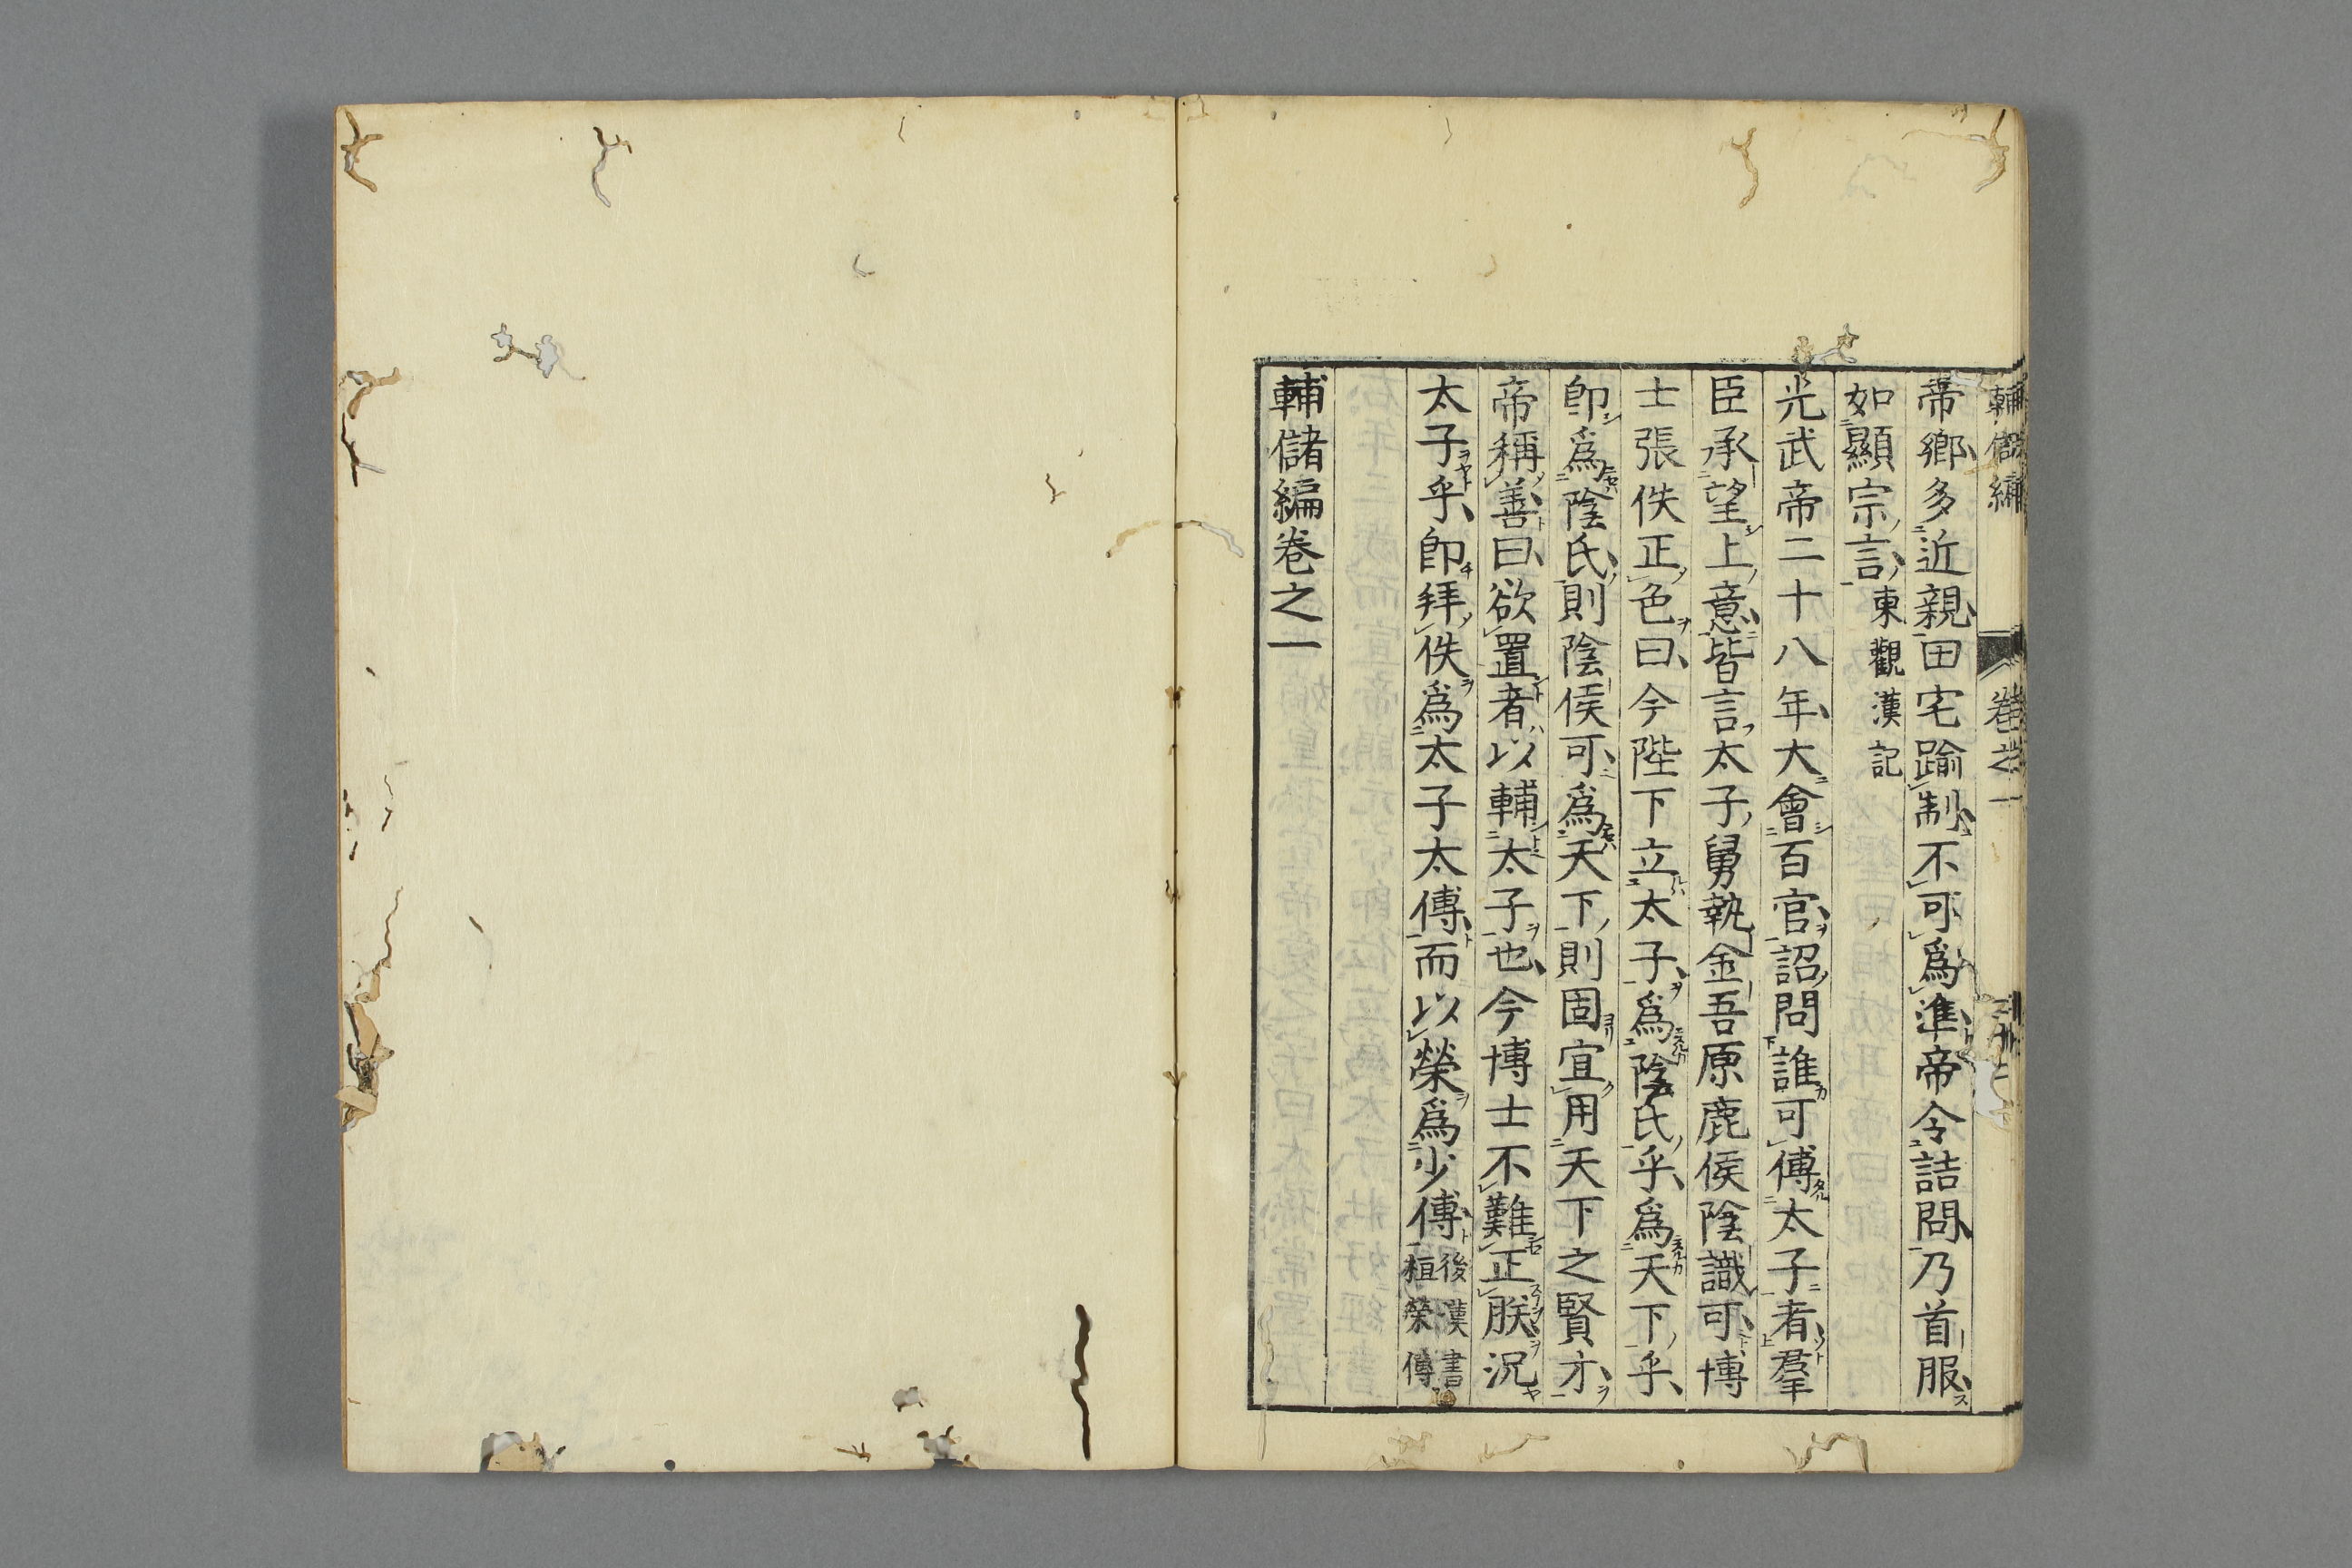 輔儲編 卷之一
帝鄉多近親田宅踰制不可爲準帝令詰問乃首服
如顯宗言東觀漢記
光武帝二十八年大會百官詔問誰可傅太子者羣
臣承望上意皆言太子舅執金吾原鹿侯陰識可博
士張佚正色曰今陛下立太子爲陰氏乎爲天下乎
卽爲陰氏則陰侯可爲天下則固宜用天下之賢才
帝稱善曰欲置者以輔太子也今博士不難正朕况
太子乎卽拜佚爲太子太傅而以榮爲少傅後漢書桓榮傳
輔儲編卷之一